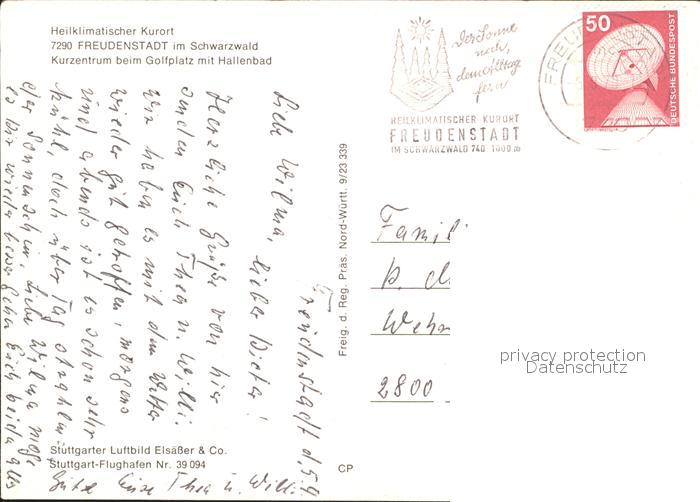 Heilklimatischer Kurort
7290 FREUDENSTADT im Schwarzwald
Kurzentrum beim Golfplatz mit Hallenbad
Der Sonne
nah,
dem Alltag
fern
HEILKLIMATISCHER KURORT
FREUDENSTADT
IM SCHWARZWALD 740-1000 m
FREU
50
DEUTSCHE BUNDESPOST
Freudenstadt d. 5.9
Liebe Wilma, lieber Dieter!
Herzliche Grüße von hier
senden Euch Thea u. Willi.
Wir haben es mit dem Wetter
wieder gut getroffen, morgens
und abends ist es schon sehr
kühl, doch über Tag strahlen
der Sonnenschein. Liebe Wilma möge
es Dir wieder besser gehen Euch beiden alles
Gute Eure Thea u. Willi.
Famil
d.
Wehr
2800
Freig. d. Reg. Präs. Nord-Württ. 9/23 339
privacy protection
Datenschutz
Stuttgarter Luftbild Elsäßer & Co.
Stuttgart-Flughafen Nr. 39 094
CP